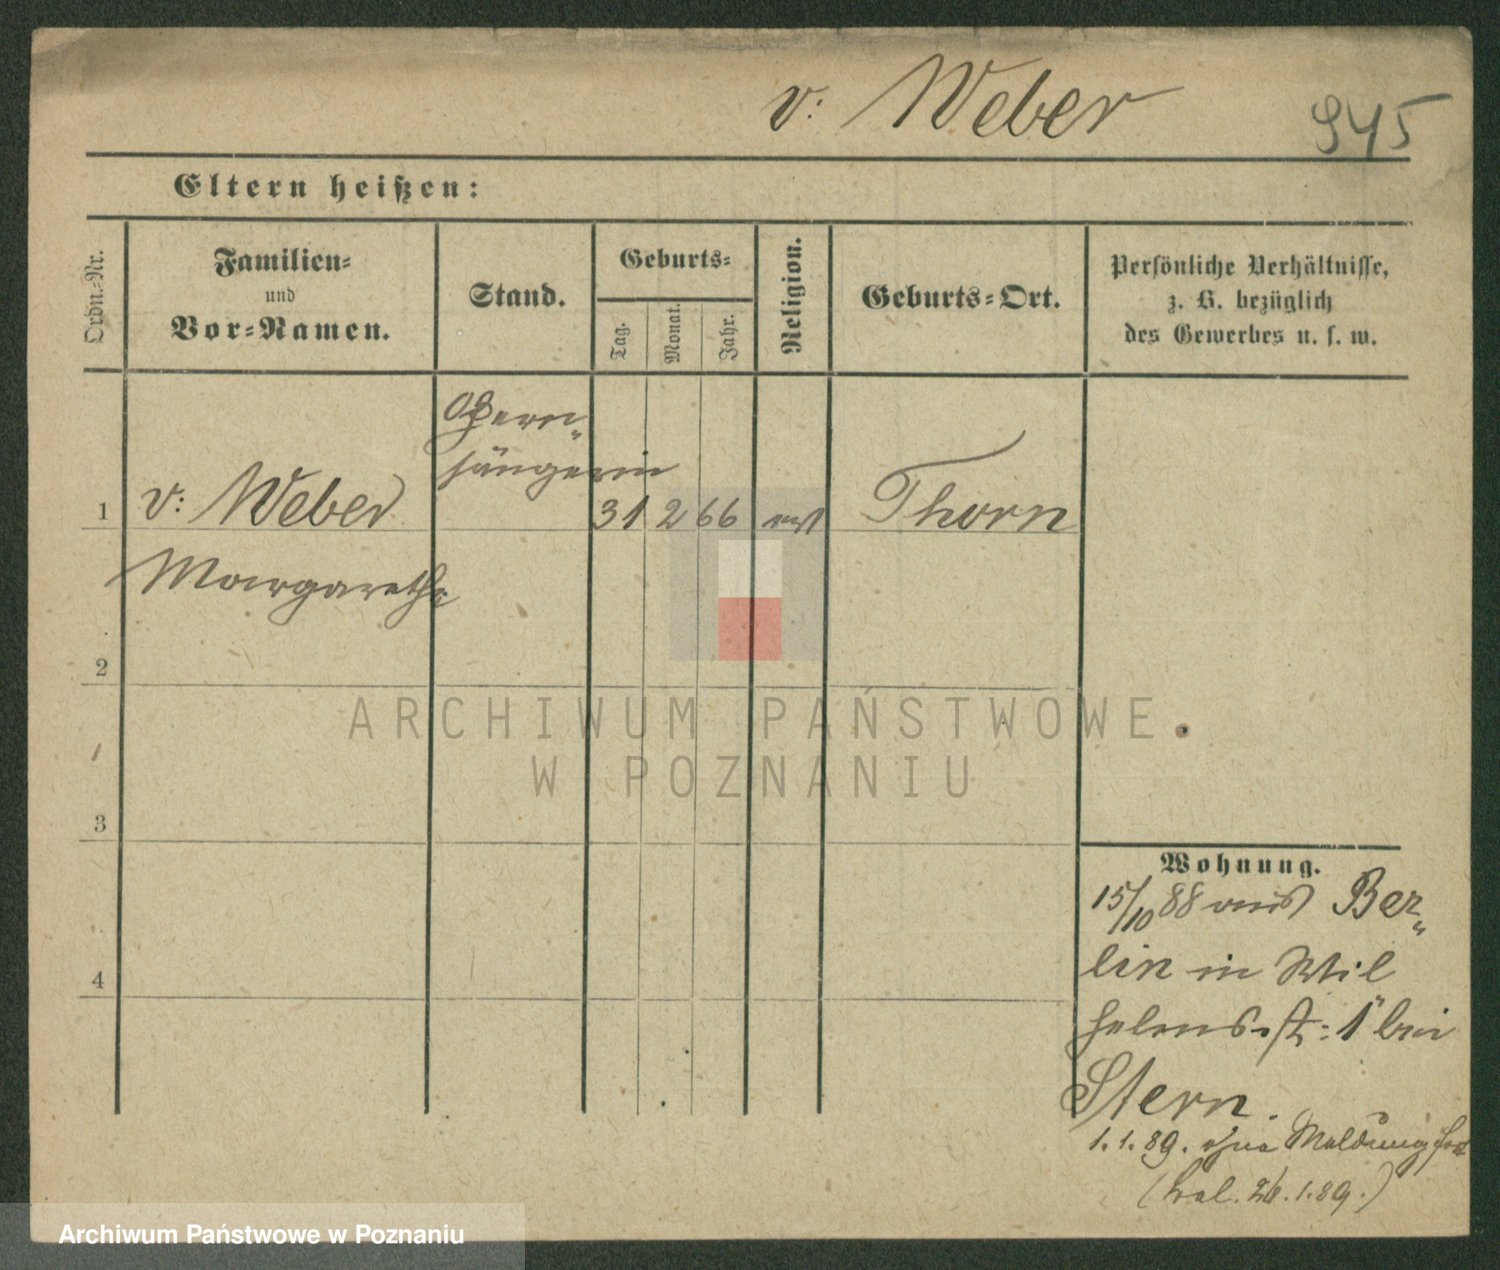 v: Weber
945
Eltern heißen:
Ordn.-Nr.
Familien-
und
Vor-Namen.
Stand.
Geburts-
Tag.
Monat.
Jahr.
Religion.
Geburts-Ort.
Persönliche Verhältnisse,
z. B. bezüglich
des Gewerbes u. s. w.
Opern-
sängerin
1 v: Weber 31 2 66 Thorn
Margarethe
2
3
4
ARCHIWUM PAŃSTWOWE
W POZNANIU
Wohnung.
15/10 88 aus Ber-
lin in Wil
helmsst: 1 bei
Stern.
1.1.89. ohne Meldung fort
1.89.)
Archiwum Państwowe w Poznaniu